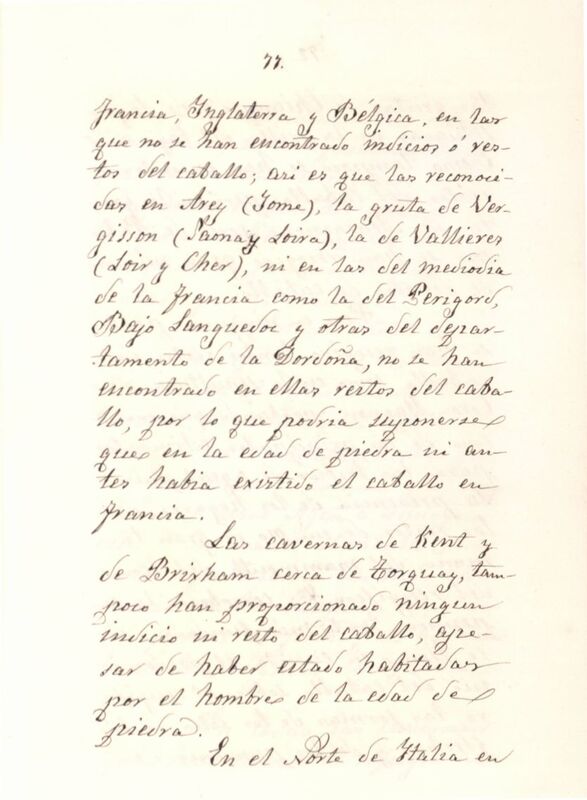 77.
Francia, Inglaterra y Bélgica, en las
que no se han encontrado indicios ó res-
tos del caballo; asi es que las reconoci-
das en Arcy (Yome), la gruta de Ver-
gisson (Saona y Loira), la de Vallieres
(Loir y Cher), ni en las del mediodia
de la Francia como la del Perigord,
Bajo Languedoc y otras del depar-
tamento de la Dordoña, no se han
encontrado en ellas restos del caba-
llo, por lo que podria suponerse
que en la edad de piedra ni an-
tes habia existido el caballo en
Francia.
Las cavernas de Kent y
de Brixham cerca de Torquay, tam-
poco han proporcionado ningun
indicio ni resto del caballo, ape-
sar de haber estado habitadas
por el hombre de la edad de
piedra.
En el Norte de Italia en